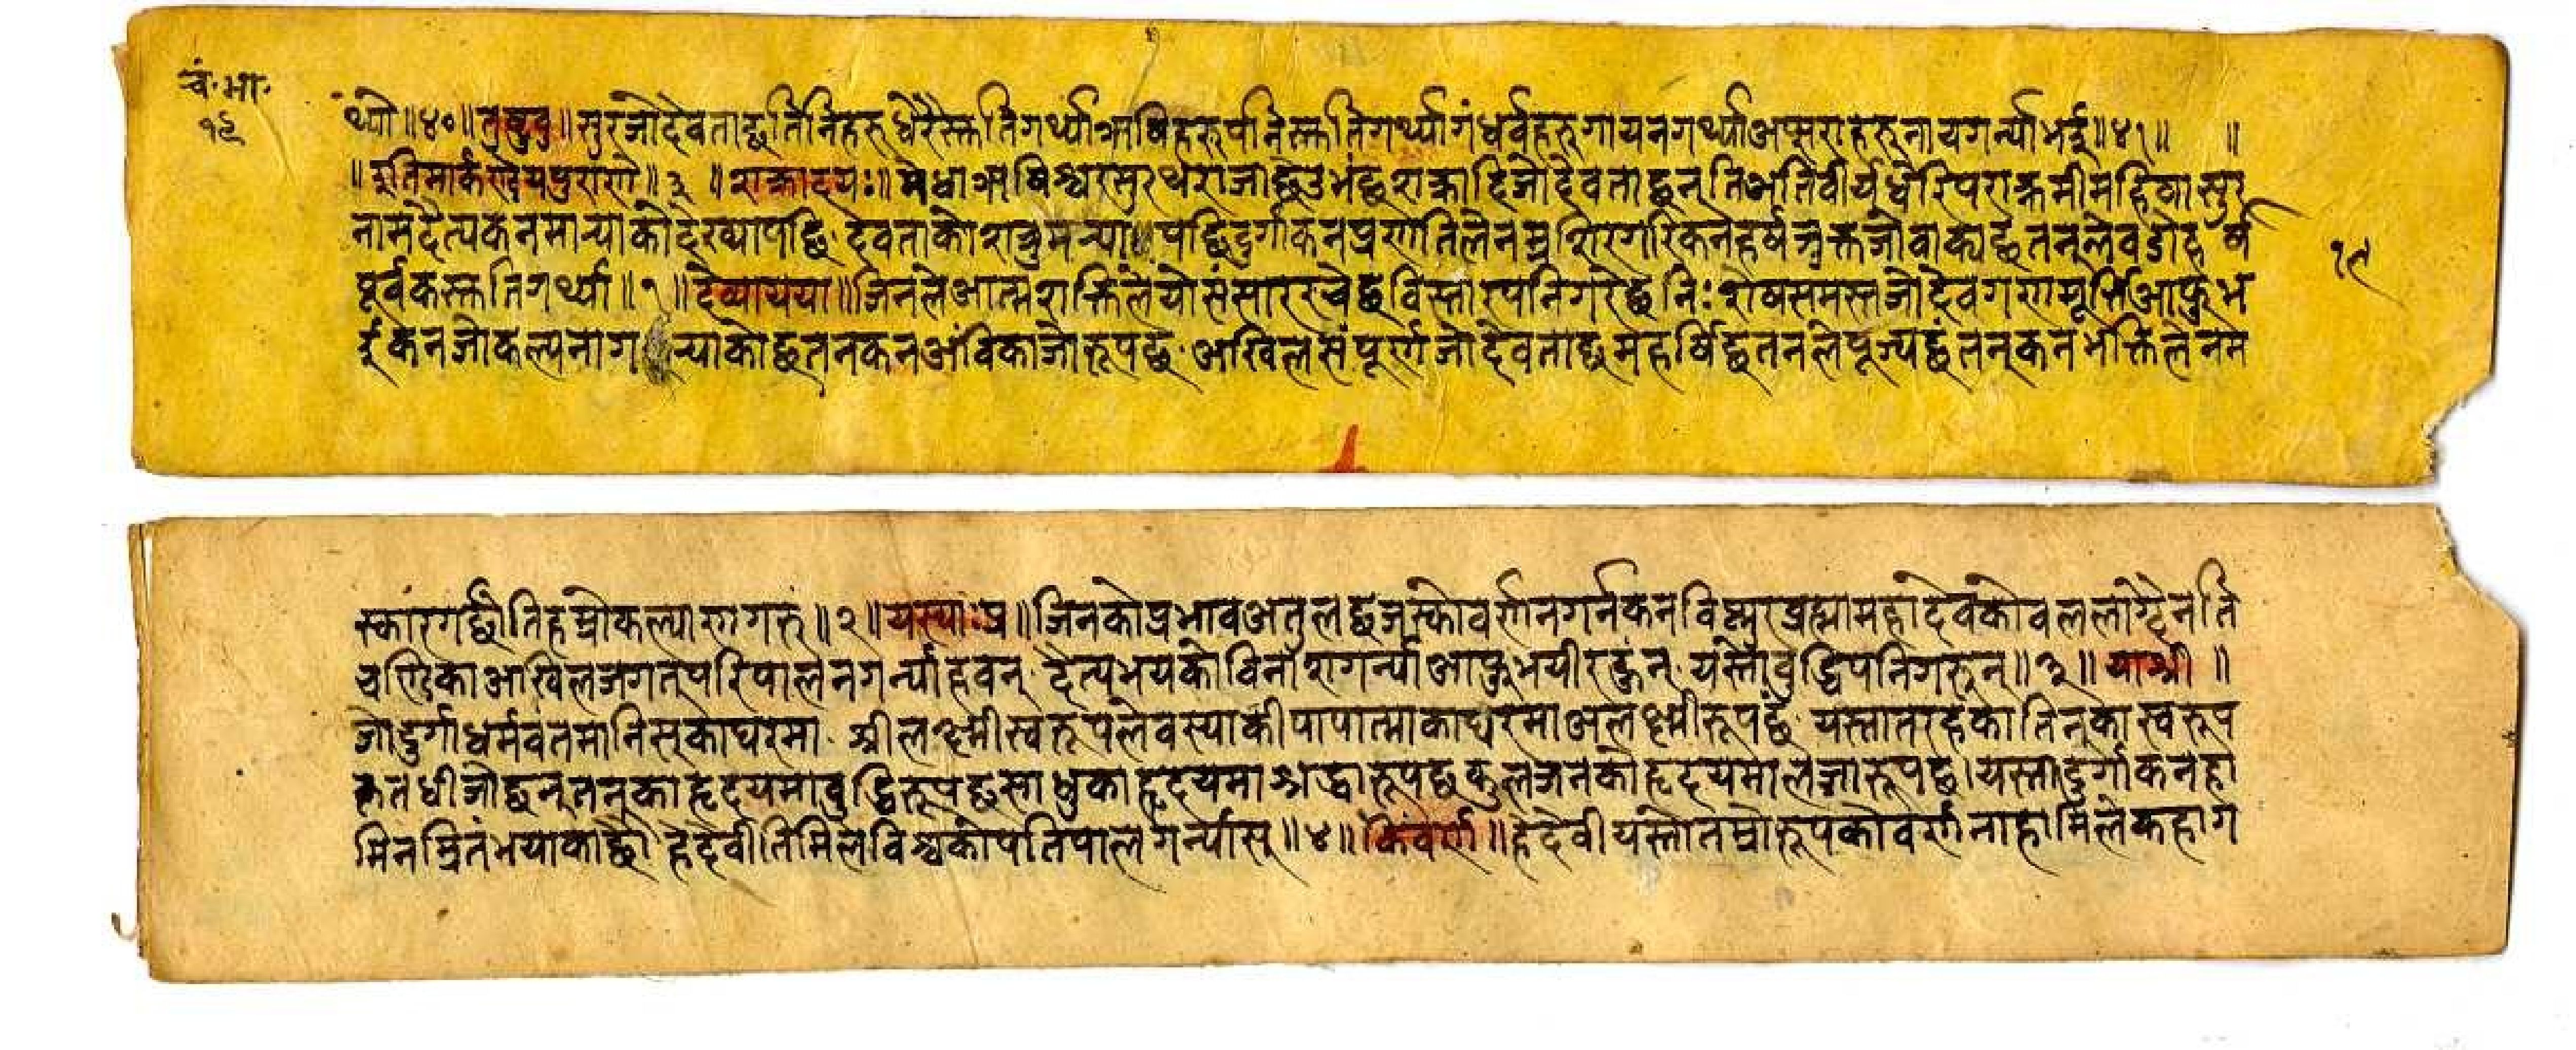 चं॰भा॰
१९
थ्यो॥४०॥तुष्टुवु॥सुरजोदेवताछतिनिहरुधेरैस्तुतिगर्थ्याऋषिहरुपनिस्तुतिगर्थ्यागंधर्वहरुगायनगर्थ्याअप्सराहरुनाचगर्न्याभई॥४१॥ ॥
॥इतिमार्कण्डेयपुराणे॥३॥शक्रादयः॥मेधाऋषिश्वरसुरथराजाछेउभंछशक्रादिजोदेवताछन्तिअतिवीर्यधेरिपराक्रमीमहिषासुर
नामदैत्यकनमार्‍याकोदेख्यापछि देवताकोशत्रुमर्‍यापछिदुर्गाकनप्रणतिलेनम्रशिरगरिकनहर्षजुक्तजोवाक्यछतनलेवडोहर्ष
१९
पूर्वकस्तुतिगर्थ्या॥१॥देव्यायया॥जिनलेआत्मशक्तिलेयोसंसाररचेछविस्तारपनिगरेछनिःशेषसमस्तजोदेवगणमूर्तिआफुभ
ईकनजोकल्पनाग र्‍याकोछतनकनअंविकाजोरूपछ अखिलसंपूर्णजोदेवताछमहर्षिछतनलेपूज्यछंतनकनभक्तिलेनम
स्कारगर्छौतिहम्रोकल्याणगरु॥२॥यस्याःप्र॥जिनकोप्रभावअतुलछजस्कोवर्णनगर्नकनविष्णुरब्रह्मामहादेवकोवललाग्दैनति
चण्डिकाअखिलजगत्परिपालनगर्न्याहवन् दैत्यभयकोविनाशगर्न्याआफुभयीरहुन् यस्तोवुद्धिपनिगरुन्॥३॥याश्री॥
जोदुर्गाधर्मवंतमानिस्काघरमा श्रीलक्ष्मीस्वरूपलेवस्याकीपापात्माकाघरमाअलक्ष्मीरूपछ यस्तातरहकातिनकास्वरूप
कृतधीजोछन्तनकाहृदयमावुद्धिरूपछसाधुकाहृदयमाश्रद्धारूपछकुलजनकोहृदयमालज्जारूपछ।यस्तादुर्गाकनहा
मिनम्रितभयाकाछौ हेदेवीतिमिलेविश्वकोपतिपालगर्न्यास्॥४॥किंवर्ण॥हेदेवीयस्तोतम्रोरूपकोवर्णनाहामिलेकहाग